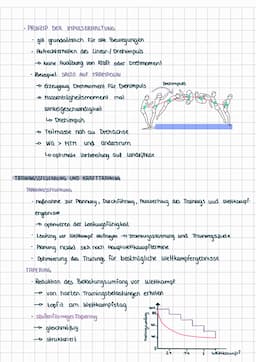 - PRINZIP DER IMPULSERHALTUNG
- gilt grundsätzlich für alle Bewegungen
- Aufrechterhalten des Linear/Drehimpuls
→ keine Ausübung von Kraft oder Drehmoment
- Beispiel: SALTO AUF TRAMPOLIN
Drehimpuls
→ Erzeugung Drehmoment für Drehimpuls
→ Massenträgheitsmoment mal
Winkelgeschwindigkeit
↳ Drehimpuls
→ Teilmasse nah zu Drehachse
→ WG > MTM und andersrum
↳ optimale Vorbereitung auf Landephase
TRAININGSSTEUERUNG UND KRAFTTRAINING
TRAININGSPLANUNG
- Maßnahme zur Planung, Durchführung, Auswertung des Trainings und Wettkampf
ergebnisse
→ optimieren der Leistungsfähigkeit
- Planung richtet sich nach Hauptwettkampftermine
- Optimierung des Trainings für bestmögliche Wettkampfergebnisse
TAPERING
- Reduktion des Belastungsumfang vor Wettkampf
→ von harten Trainingsbelastungen erholen
→ topfit am Wettkampftag
- stufenförmiges Tapering
→ gleichmäßig
→ strukturiert
Wettkampf